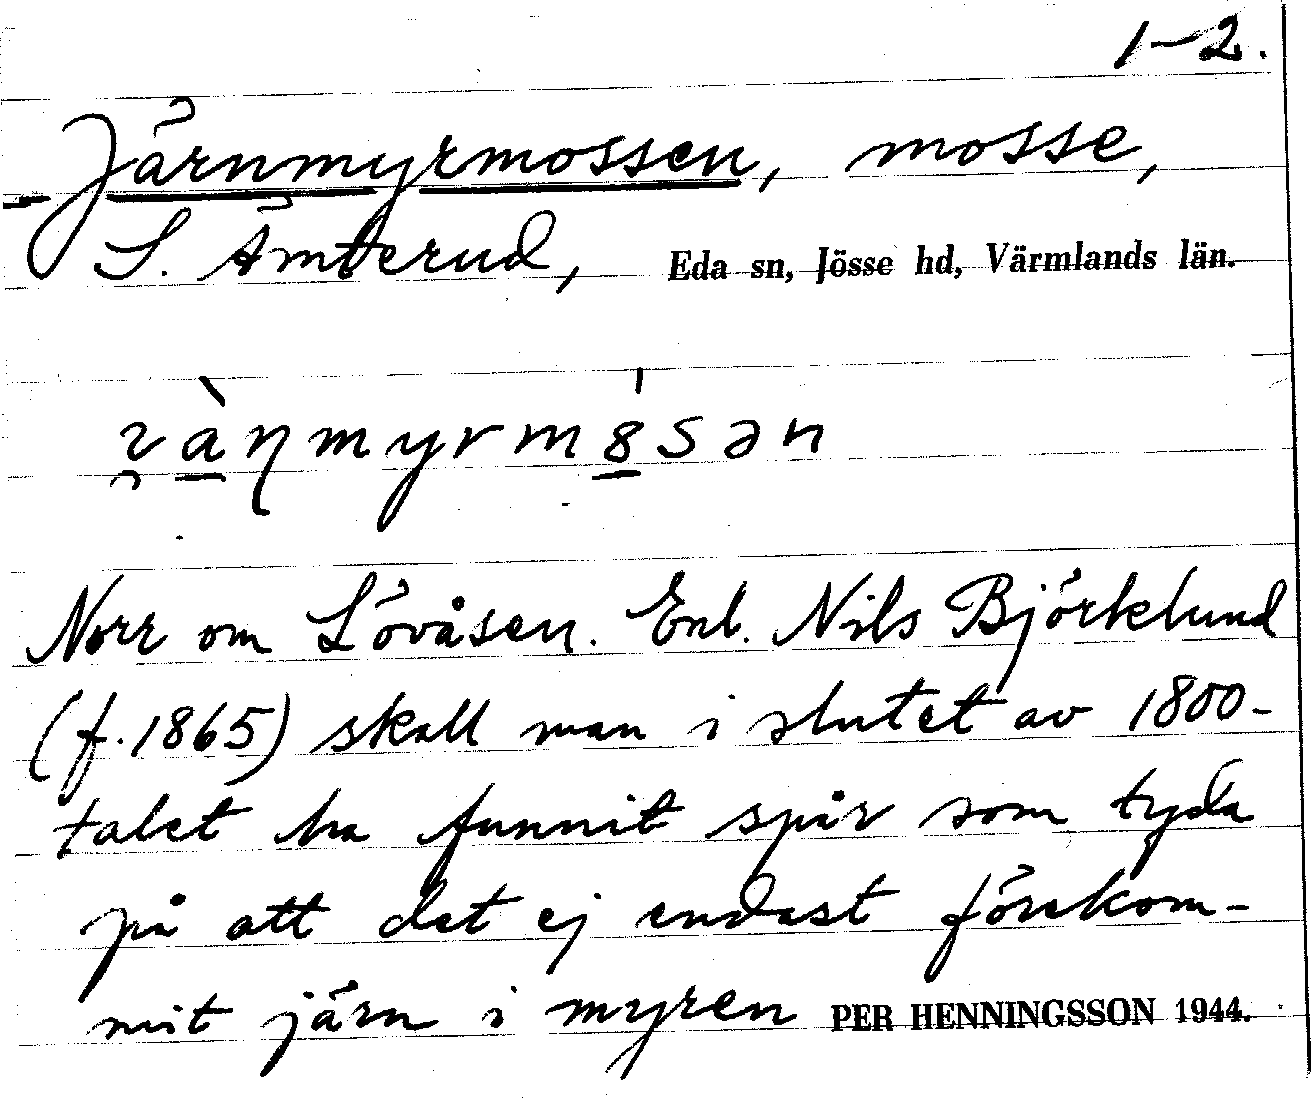 1–2.
Järnmyrmossen, mosse,
S. Ämterud, Eda sn, Jösse hd, Värmlands län.
Norr om Lövåsen. Enl. Nils Björklund
(f. 1865) skall man i slutet av 1800-
talet ha funnit spår som tyda
på att det ej endast förekom-
mit järn i myren PER HENNINGSSON 1944.